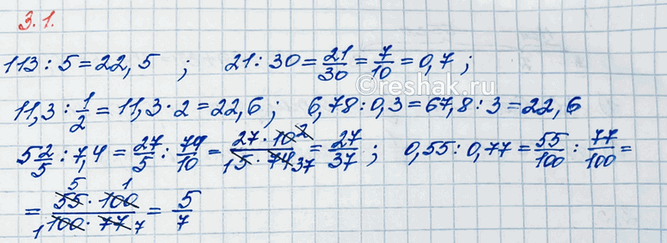 3.1.
113 : 5 = 22,5 ; 21 : 30 = 21/30 = 7/10 = 0,7 ;
11,3 : 1/2 = 11,3 · 2 = 22,6 ; 6,78 : 0,3 = 67,8 : 3 = 22,6
5 2/5 : 7,4 = 27/5 : 74/10 = 27 · 10 2 / 1 5 · 74 37 = 27/37 ; 0,55 : 0,77 = 55/100 : 77/100 =
= 5 55 · 100 1 / 1 100 · 77 7 = 5/7
reshak.ru